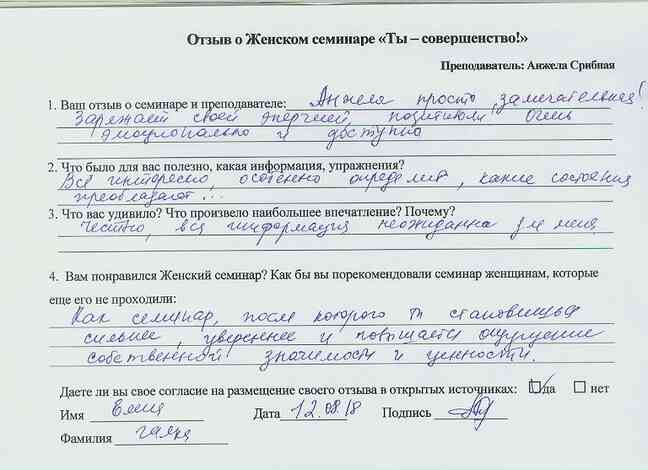 Отзыв о Женском семинаре «Ты – совершенство!»
Преподаватель: Анжела Срибная
1. Ваш отзыв о семинаре и преподавателе: Анжела просто замечательная!
Заряжает своей энергией, позитивом. Очень
эмоционально и доступно
2. Что было для вас полезно, какая информация, упражнения?
Всё интересно, особенно определив, какие состояния
преобладают...
3. Что вас удивило? Что произвело наибольшее впечатление? Почему?
Честно, вся информация неожиданна для меня
4. Вам понравился Женский семинар? Как бы вы порекомендовали семинар женщинам, которые
еще его не проходили:
Как семинар, после которого ты становишься
сильнее, увереннее и повышается ощущение
собственной значимости и ценности.
Даете ли вы свое согласие на размещение своего отзыва в открытых источниках: да нет
Имя Елена Дата 12.08.18 Подпись
Фамилия